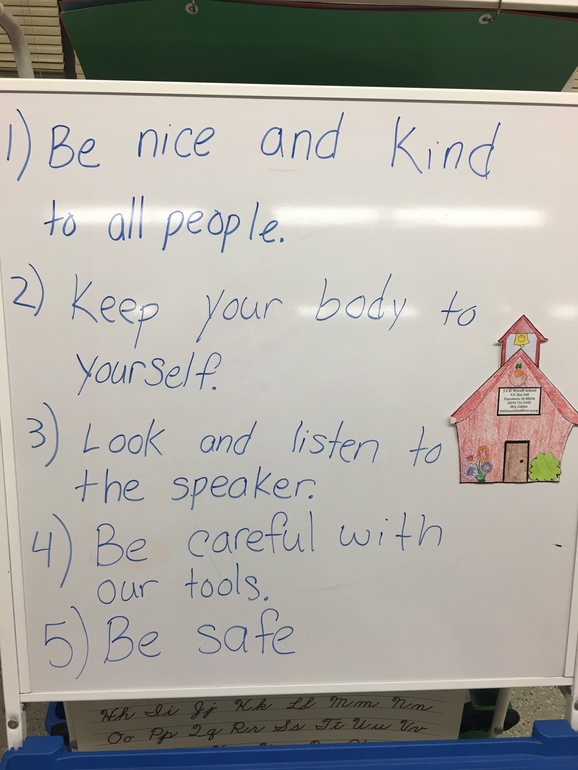 1) Be nice and Kind
to all people.
2) Keep your body to
yourself.
3) Look and listen to
the speaker.
4) Be careful with
our tools.
5) Be safe
Hh Ii Jj Kk Ll Mm Nn
Oo Pp Qq Rr Ss Tt Uu Vv